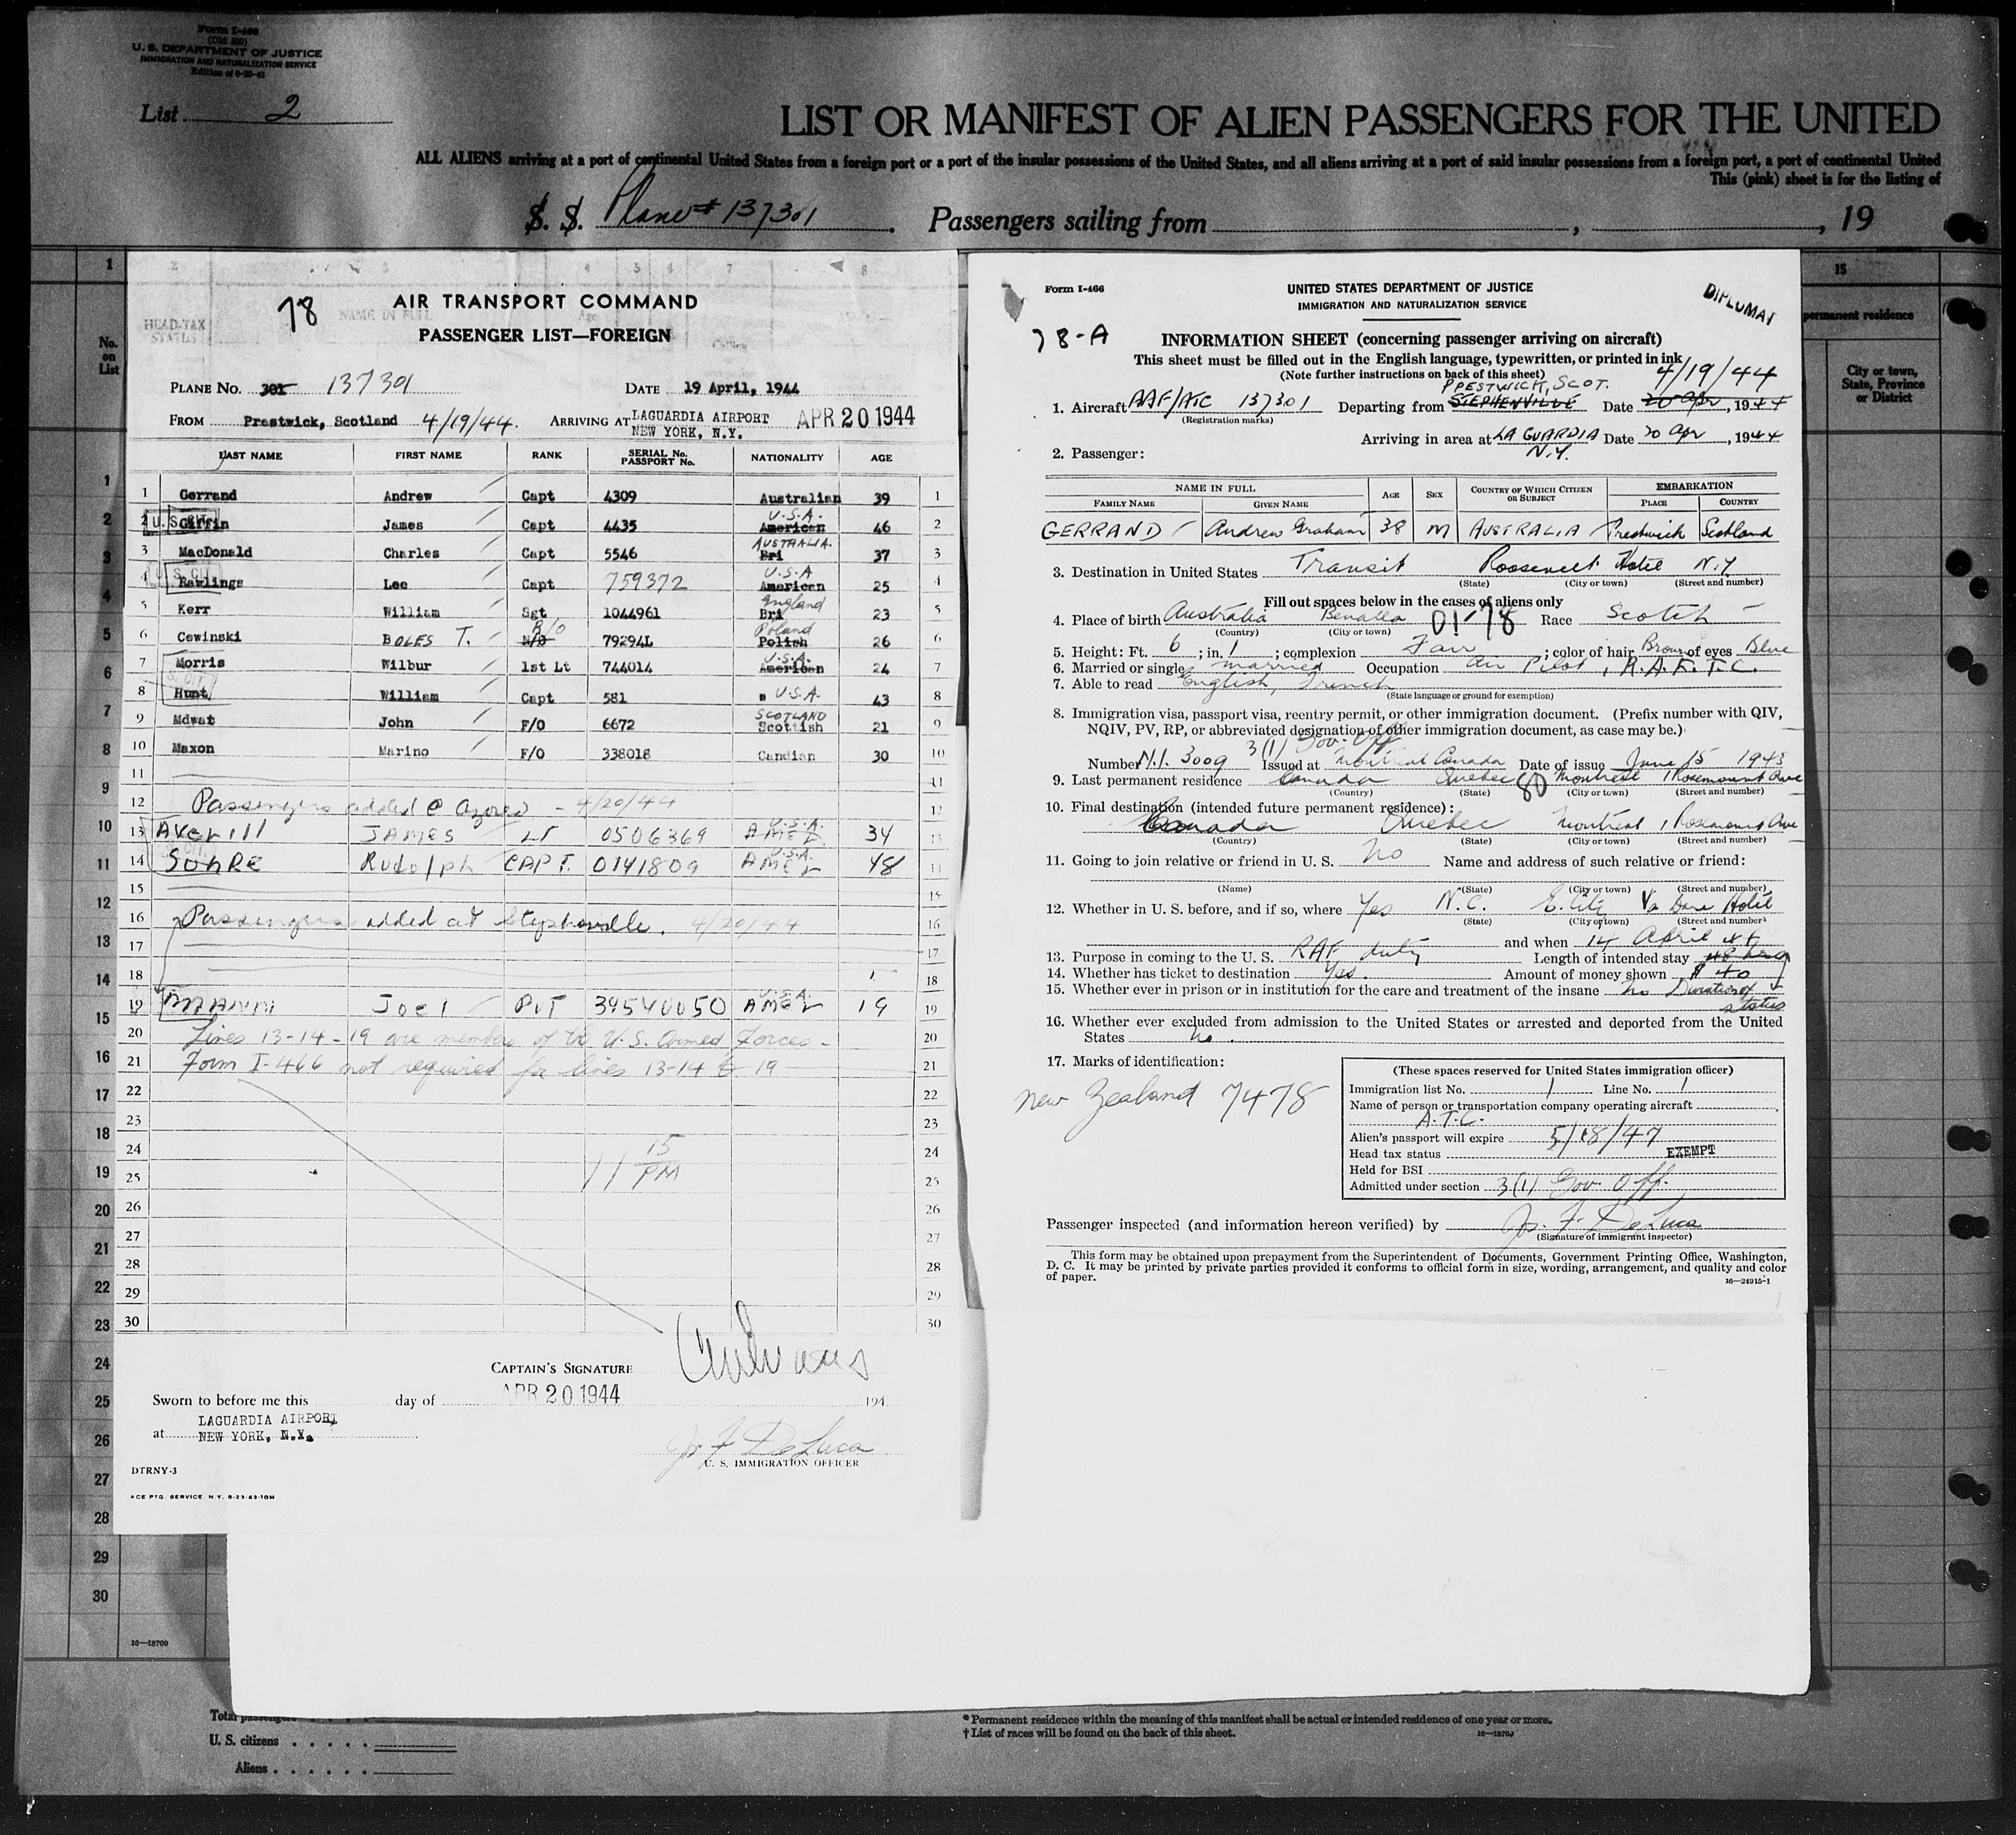 Form I-466
(Old 500)
U. S. DEPARTMENT OF JUSTICE
IMMIGRATION AND NATURALIZATION SERVICE
Edition of 6-20-42
List 2
LIST OR MANIFEST OF ALIEN PASSENGERS FOR THE UNITED
ALL ALIENS arriving at a port of continental United States from a foreign port or a port of the insular possessions of the United States, and all aliens arriving at a port of said insular possessions from a foreign port, a port of continental United
This (pink) sheet is for the listing of
S. S. Plane # 137301 . Passengers sailing from , , 19
78
AIR TRANSPORT COMMAND
PASSENGER LIST—FOREIGN
PLANE No. 301 137301 DATE 19 April, 1944
FROM Prestwick, Scotland 4/19/44. ARRIVING AT LAGUARDIA AIRPORT NEW YORK, N.Y. APR 20 1944
LAST NAME FIRST NAME RANK SERIAL No. PASSPORT No. NATIONALITY AGE
1 Gerrand Andrew Capt 4309 Australian 39 1
2 U. S. CIT. Giffin James Capt 4435 American U.S.A. 46 2
3 MacDonald Charles Capt 5546 Bri AUSTRALIA. 37 3
4 U. S. CIT. Rawlings Lee Capt 759372 American U.S.A 25 4
5 Kerr William Sgt 1044961 Bri England 23 5
6 Cewinski BOLES T. N/O R/O 79294L Polish Poland 26 6
7 Morris Wilbur 1st Lt 744014 American U.S.A. 24 7
8 Hunt William Capt 581 " U.S.A 43 8
9 Mdwat John F/O 6672 Scottish SCOTLAND 21 9
10 Maxon Marino F/O 338018 Candian 30 10
11 11
12 Passengers added @ Azores - 4/20/44 12
13 AVerill JAMES LT 0506369 AMER U.S.A. 34 13
14 SOHRE Rudolph CAPT. 0141809 AMER U.S.A. 48 14
15 15
16 Passengers added at Stephenville. 4/20/44 16
17 17
18 18
19 MANN Joel PVT 39540050 AMER U.S.A. 19 19
20 Lines 13-14-19 are members of the U.S. Armed Forces - 20
21 Form I-466 not required for lines 13-14 & 19 21
22 22
23 23
24 24
11 15 PM
25 25
26 26
27 27
28 28
29 29
30 30
CAPTAIN'S SIGNATURE
Sworn to before me this day of APR 20 1944 194
at LAGUARDIA AIRPORT
NEW YORK, N.Y.
Jos F DeLuca
U. S. IMMIGRATION OFFICER
DTRNY-3
ACE PTG. SERVICE. N.Y. 8-23-43-10M
Form I-466
UNITED STATES DEPARTMENT OF JUSTICE
IMMIGRATION AND NATURALIZATION SERVICE
DIPLOMAT
78-A
INFORMATION SHEET (concerning passenger arriving on aircraft)
This sheet must be filled out in the English language, typewritten, or printed in ink
(Note further instructions on back of this sheet)
PRESTWICK, SCOT. 4/19/44
1. Aircraft AAF/ATC 137301 Departing from STEPHENVILLE Date 20 Apr, 1944
(Registration marks)
Arriving in area at LA GUARDIA N.Y. Date 20 Apr, 1944
2. Passenger:
NAME IN FULL AGE SEX COUNTRY OF WHICH CITIZEN OR SUBJECT EMBARKATION
FAMILY NAME GIVEN NAME PLACE COUNTRY
GERRAND Andrew Graham 38 M AUSTRALIA Prestwick Scotland
3. Destination in United States Transit Roosevelt Hotel N.Y
(State) (City or town) (Street and number)
Fill out spaces below in the cases of aliens only
4. Place of birth Australia Benalla 01-78 Race Scotch
(Country) (City or town)
5. Height: Ft. 6 ; in. 1 ; complexion Fair ; color of hair Brown of eyes Blue
6. Married or single married Occupation Air Pilot, R.A.F.T.C.
7. Able to read English, French
(State language or ground for exemption)
8. Immigration visa, passport visa, reentry permit, or other immigration document. (Prefix number with QIV,
NQIV, PV, RP, or abbreviated designation of other immigration document, as case may be.)
3(1) Gov. Off
Number N.I. 3009 Issued at Montreal Canada Date of issue June 15 1943
9. Last permanent residence Canada Quebec 80 Montreal 1 Rosemount Ave
(Country) (State) (City or town) (Street and number)
10. Final destination (intended future permanent residence):
Canada Quebec Montreal 1 Rosemount Ave
(Country) (State) (City or town) (Street and number)
11. Going to join relative or friend in U. S. No Name and address of such relative or friend:
(Name) (State) (City or town) (Street and number)
12. Whether in U. S. before, and if so, where Yes N.C. E. City Va Dare Hotel
(State) (City or town) (Street and number)
and when 14 April 44
13. Purpose in coming to the U. S. RAF duty Length of intended stay
14. Whether has ticket to destination Yes. Amount of money shown $ 40
15. Whether ever in prison or in institution for the care and treatment of the insane No Duration of status
16. Whether ever excluded from admission to the United States or arrested and deported from the United
States No.
17. Marks of identification:
New Zealand 7478
(These spaces reserved for United States immigration officer)
Immigration list No. 1 Line No. 1
Name of person or transportation company operating aircraft
A.T.C.
Alien's passport will expire 5/18/47
Head tax status EXEMPT
Held for BSI
Admitted under section 3(1) Gov. Off.
Passenger inspected (and information hereon verified) by Jos. F. DeLuca
(Signature of immigrant inspector)
This form may be obtained upon prepayment from the Superintendent of Documents, Government Printing Office, Washington,
D. C. It may be printed by private parties provided it conforms to official form in size, wording, arrangement, and quality and color
of paper.
16—24915-1
15
permanent residence
City or town, State, Province or District
No. on List
1
2
3
4
5
6
7
8
9
10
11
12
13
14
15
16
17
18
19
20
21
22
23
24
25
26
27
28
29
30
16—18709
Total passengers
U. S. citizens
Aliens
* Permanent residence within the meaning of this manifest shall be actual or intended residence of one year or more.
† List of races will be found on the back of this sheet.